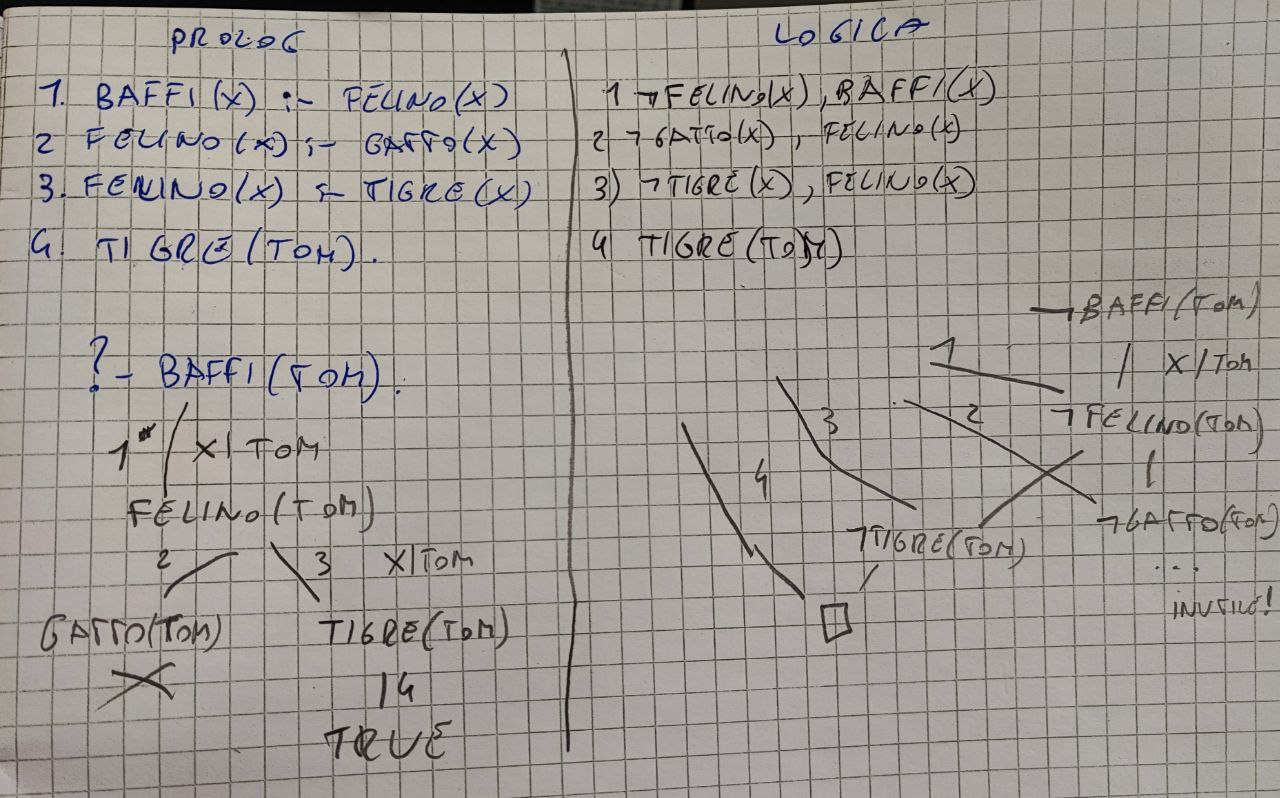 PROLOG
1. BAFFI (X) :- FELINO(X)
2 FELINO (X) :- GATTO(X)
3. FELINO(X) :- TIGRE(X)
4. TIGRE(TOM).
?- BAFFI(TOM).
1 X|TOM
FELINO(TOM)
2 3 X|TOM
GATTO(TOM) TIGRE(TOM)
X |4
TRUE
LOGICA
1 ¬FELINO(X), BAFFI(X)
2 ¬GATTO(X), FELINO(X)
3) ¬TIGRE(X), FELINO(X)
4 TIGRE(TOM)
¬BAFFI(TOM)
1 X/TOM
3 2 ¬FELINO(TOM)
4 ¬GATTO(TOM)
¬TIGRE(TOM)
...
INUTILE!